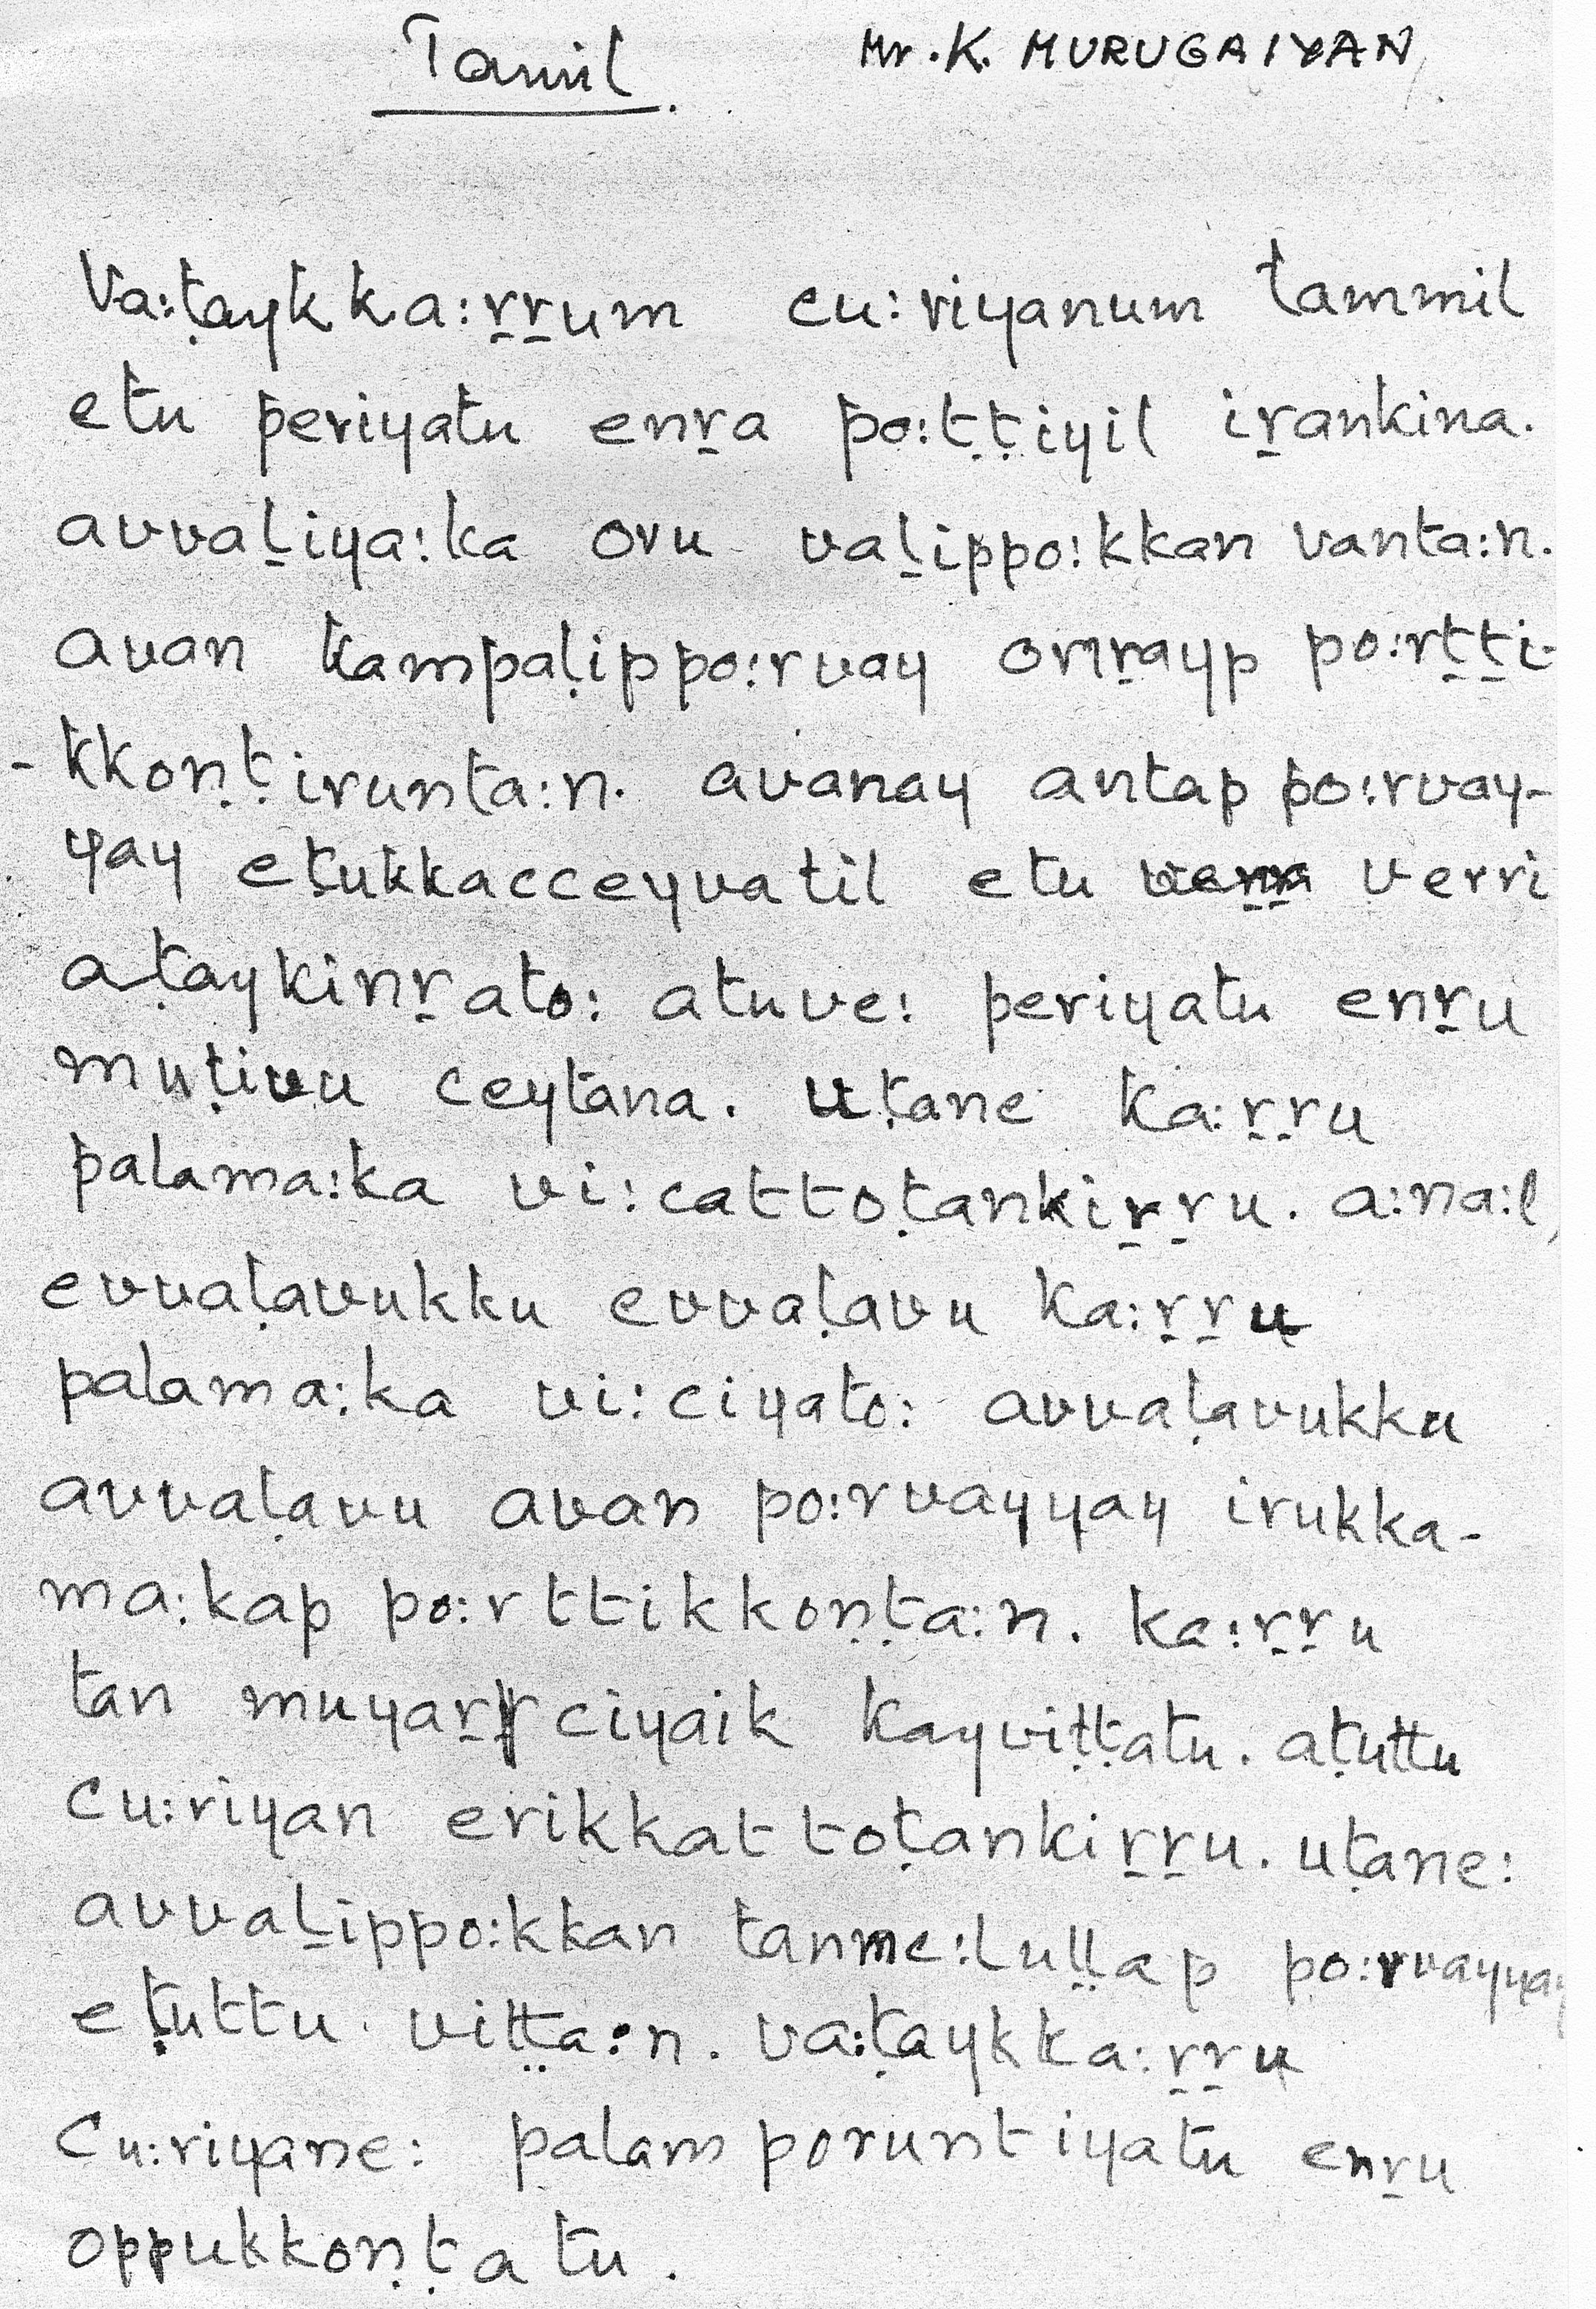 Tamil. Mr. K. MURUGAIYAN
Va:ṭaykka:ṟṟum cu:riyanum tammil
etu periyatu enṟa po:ṭṭiyil iṟankina.
avvaḻiya:ka oru vaḻippo:kkan vanta:n.
avan kampaḷippo:rvay onṟayp po:rṯṯi-
-kkoṇṭirunta:n. avanay antap po:rvay-
yay eṭukkacceyvatil etu verri
aṭaykinṟato: atuve: periyatu enṟu
muṭivu ceytana. uṭane ka:ṟṟu
palama:ka vi:cattoṭankiṟṟu. a:na:l,
evvaḷavukku evvaḷavu ka:ṟṟu
palama:ka vi:ciyato: avvaḷavukku
avvaḷavu avan po:rvayyay irukka-
ma:kap po:rttikkoṇṭa:n. ka:ṟṟu
tan muyaṟciyaik kayviṭṭatu. aṭuttu
cu:riyan erikkattoṭankiṟṟu. uṭane:
avvaḻippo:kkan tanme:luḷḷap po:rvayyay
eṭuttu viṭṭa:n. va:ṭaykka:ṟṟu
cu:riyane: palam poruntiyatu enṟu
oppukkoṇṭatu.